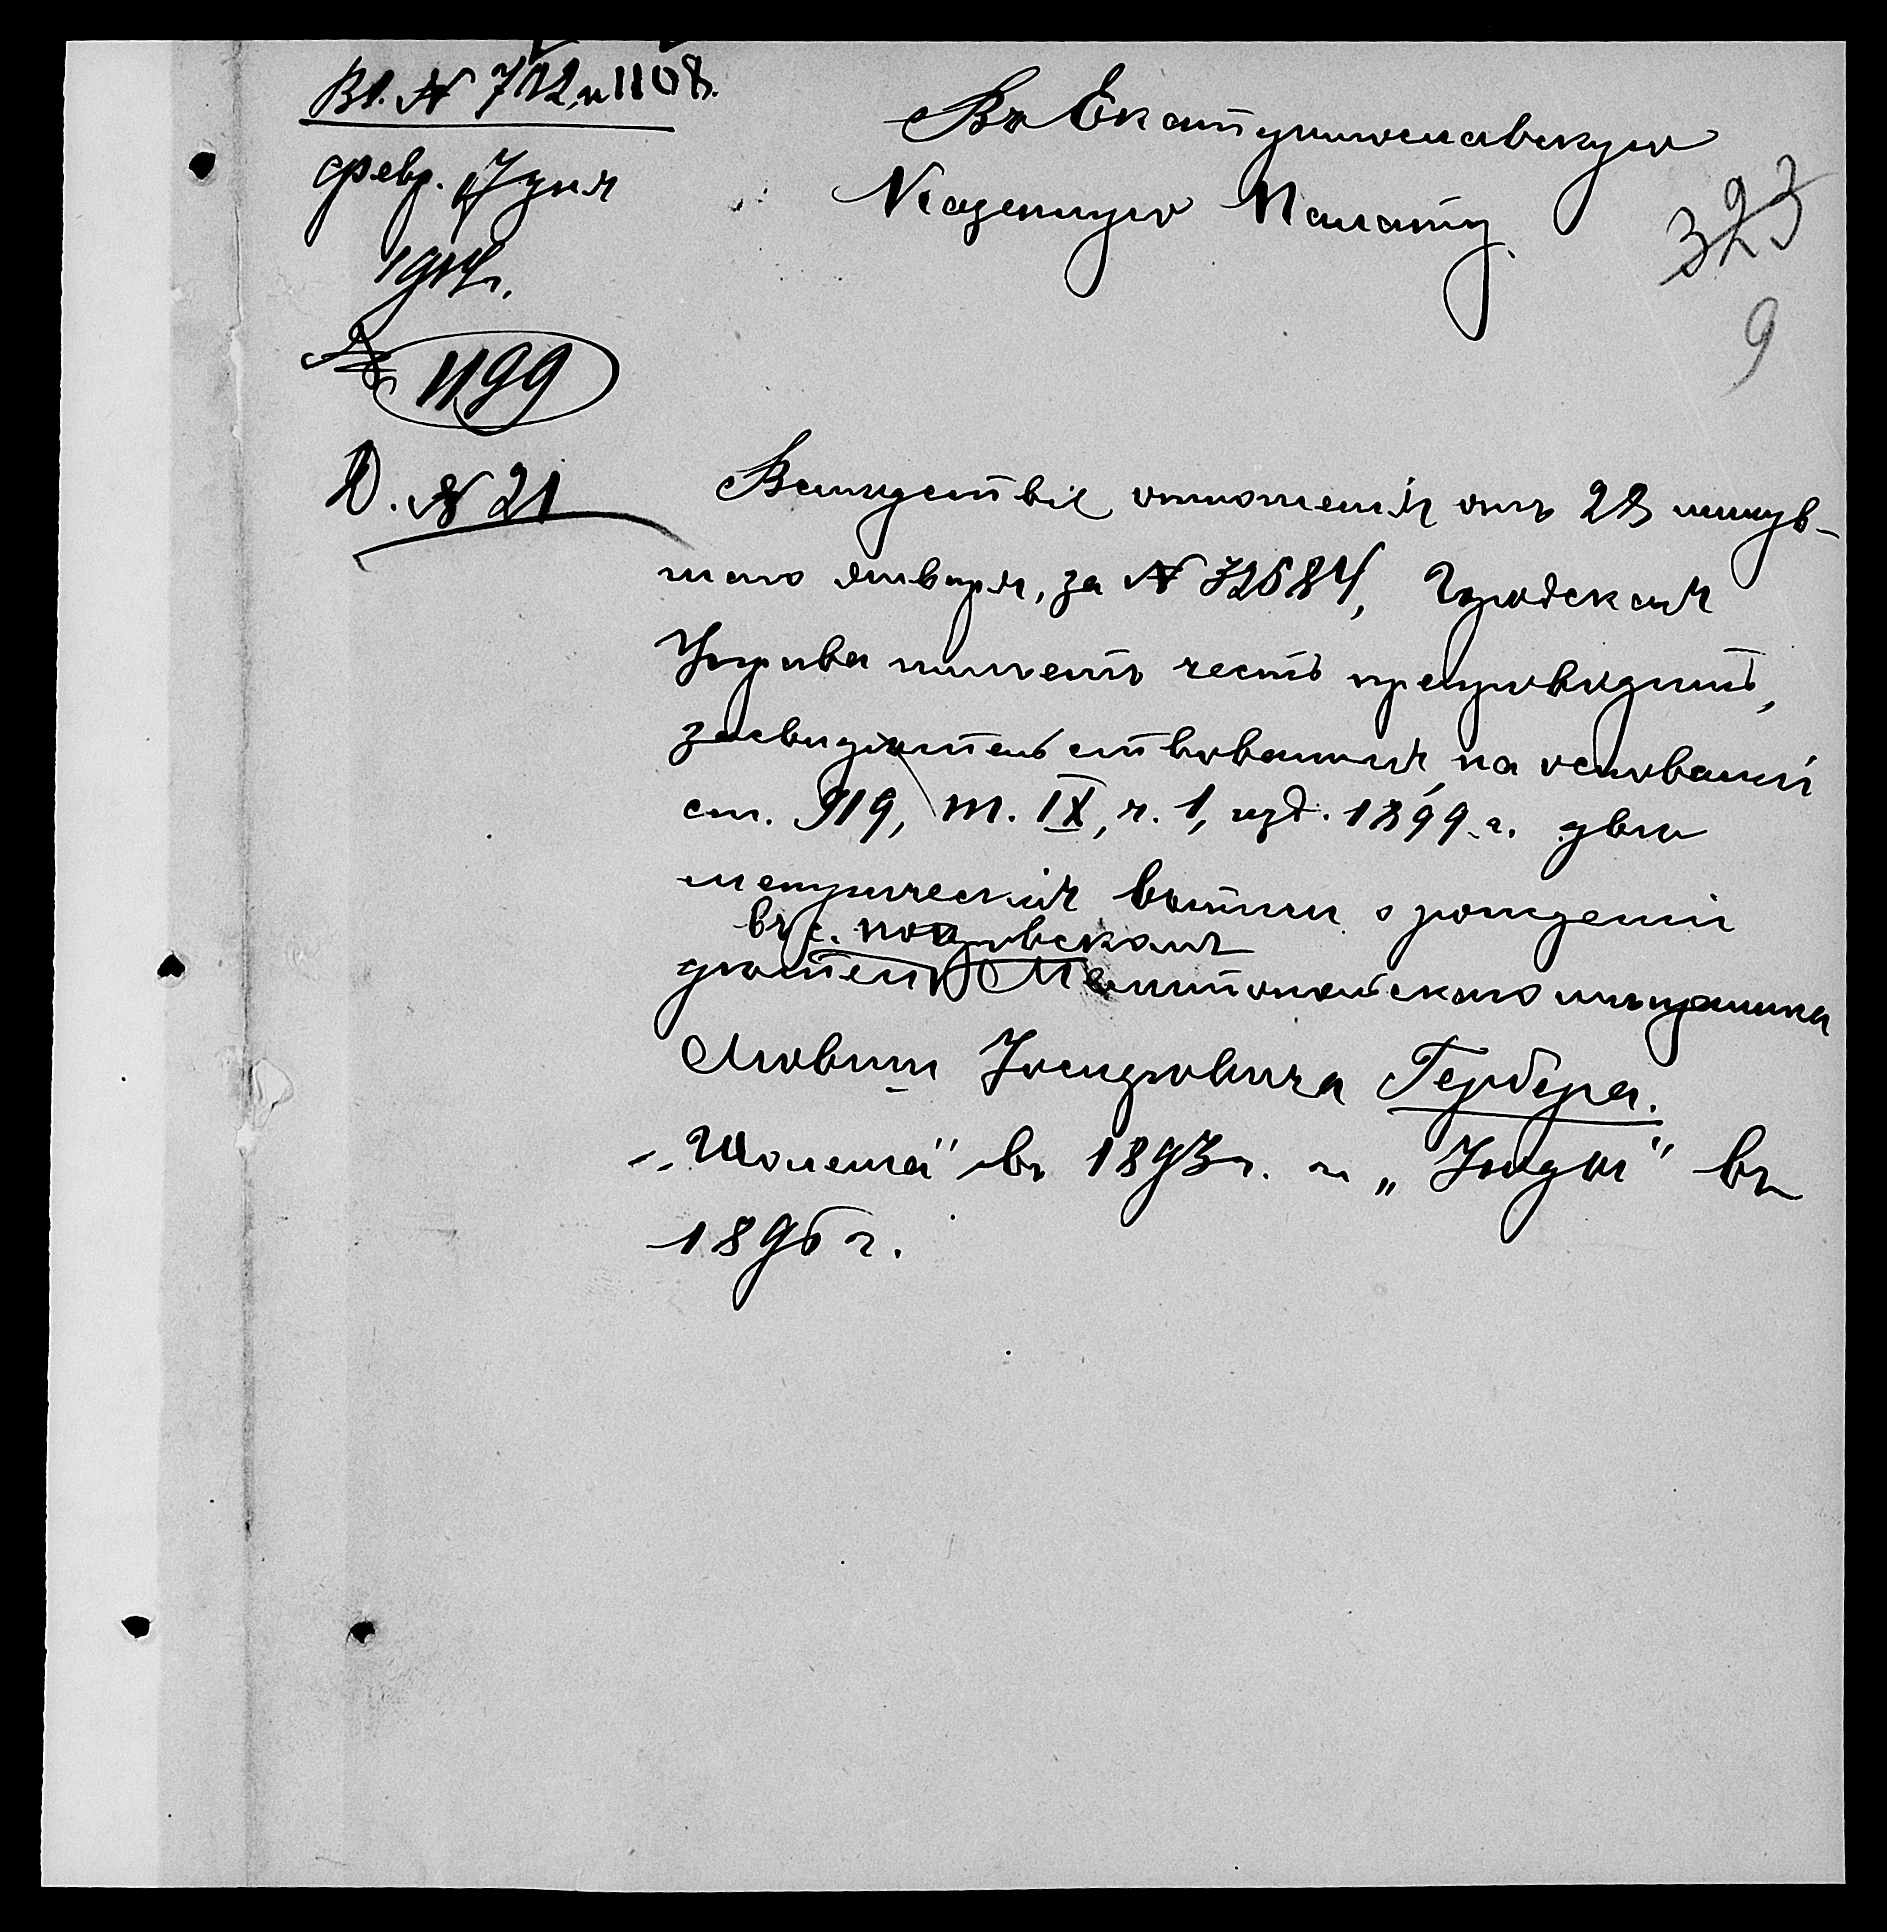 Вх. № 712 и 1108.
февр. 7 дня
1914г.
№ 1199
Д. № 21
Въ Екатеринославскую
Казенную Палату.
323
9
Вслѣдствіе отношенія отъ 28 минув-
шаго января, за № 32584, Городская
Управа имѣетъ честь препроводить,
засвидѣтельствованныя на основаніи
ст. 919, т. IX, ч. 1, изд. 1899 г. двѣ
метрическія выписи о рожденіи
въ с.
дѣтей Мелитопольскаго мѣщанина
Іосифовича Гербера.
„Шолема" въ 1893г. и „Іуды" въ
1896 г.